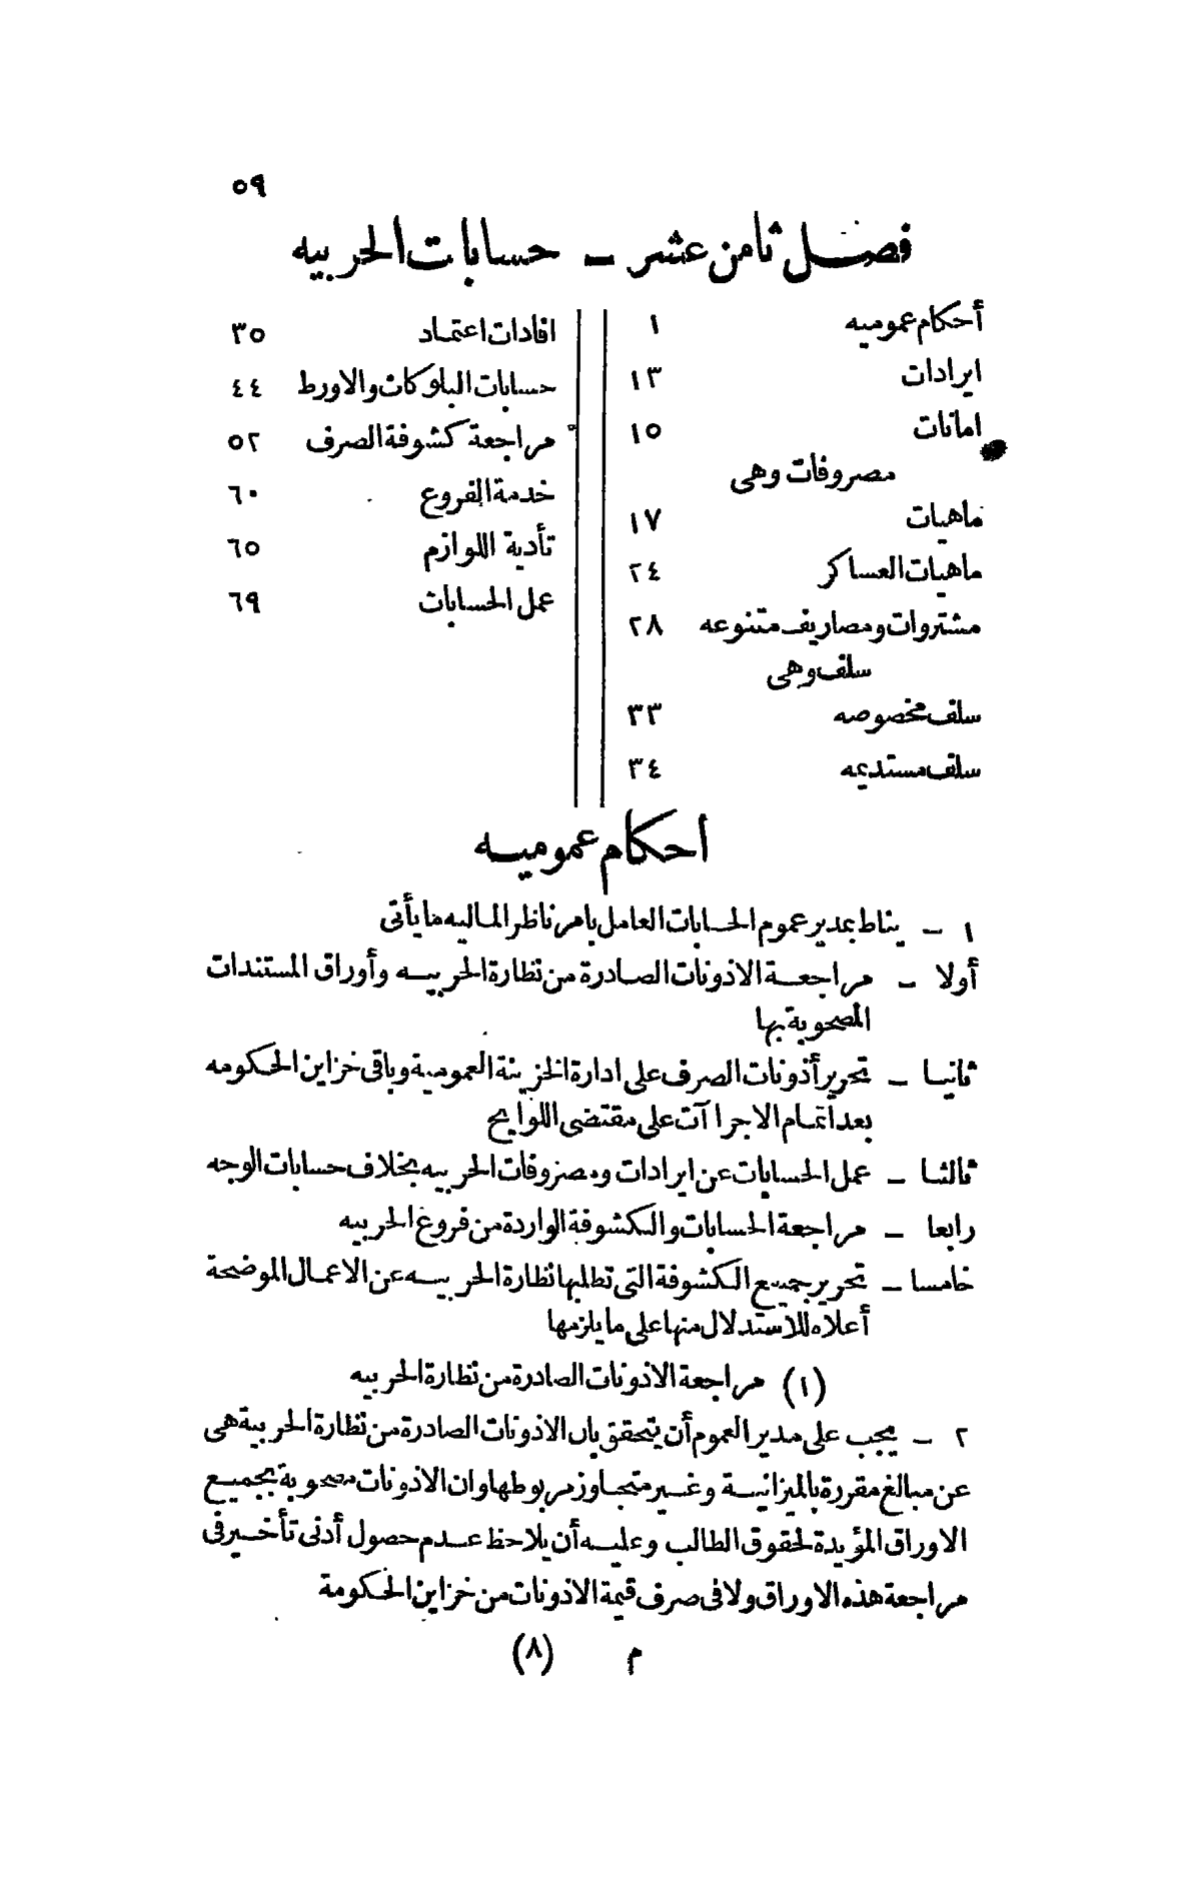 ٥٩
فصل ثامن عشر – حسابات الحربيه
أحكام عموميه ١
ايرادات ١٣
امانات ١٥
مصروفات وهى
ماهيات ١٧
ماهيات العساكر ٢٤
مشتروات ومصاريف متنوعه ٢٨
سلف وهى
سلف مخصوصه ٣٣
سلف مستديمه ٣٤
افادات اعتماد ٣٥
حسابات البلوكات والاورط ٤٤
مراجعة كشوفة الصرف ٥٢
خدمة الفروع ٦٠
تأدية اللوازم ٦٥
عمل الحسابات ٦٩
أحكام عموميه
١ – يناط بمدير عموم الحسابات العامل بامر ناظر الماليه ما يأتى
أولا – مراجعة الاذونات الصادرة من نظارة الحربيه وأوراق المستندات
المصحوبة بها
ثانيا – تحرير أذونات الصرف على ادارة الخزينة العمومية وباقى خزاين الحكومه
بعد اتمام الاجراآت على مقتضى اللوايح
ثالثا – عمل الحسابات عن ايرادات ومصروفات الحربيه بخلاف حسابات الوجه
رابعا – مراجعة الحسابات والكشوفة الواردة من فروع الحربيه
خامسا – تحرير جميع الكشوفة التى تطلبها نظارة الحربيه عن الاعمال الموضحة
أعلاه للاستدلال منها على ما يلزمها
(١) مراجعة الاذونات الصادرة من نظارة الحربيه
٢ – يجب على مدير العموم أن يتحقق بان الاذونات الصادرة من نظارة الحربية هى
عن مبالغ مقررة بالميزانية وغير متجاوز مربوطها وان الاذونات مصحوبة بجميع
الاوراق المؤيدة لحقوق الطالب وعليه أن يلاحظ عدم حصول أدنى تأخير فى
مراجعة هذه الاوراق ولا فى صرف قيمة الاذونات من خزاين الحكومة
م (٨)